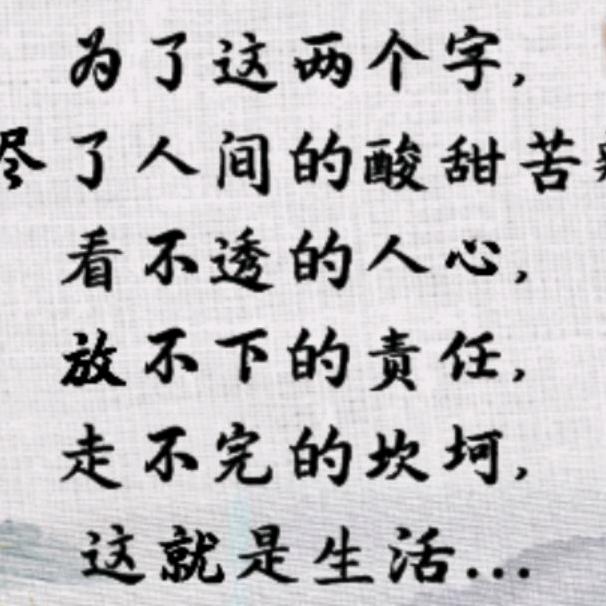 为了这两个字,
尽了人间的酸甜苦
看不透的人心,
放不下的责任,
走不完的坎坷,
这就是生活...